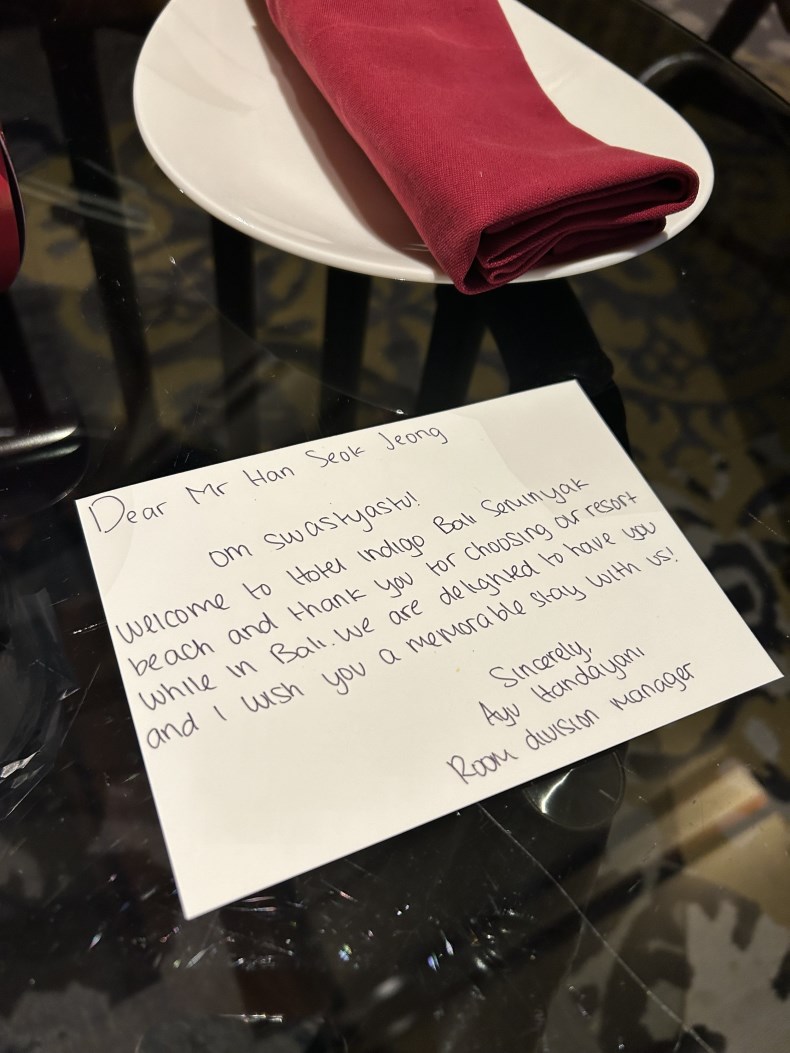 Dear Mr Han Seok Jeong
Om Swastyastu!
Welcome to Hotel Indigo Bali Seminyak
beach and thank you for choosing our resort
while in Bali. We are delighted to have you
and I wish you a memorable stay with us!
Sincerely,
Ayu Handayani
Room division manager